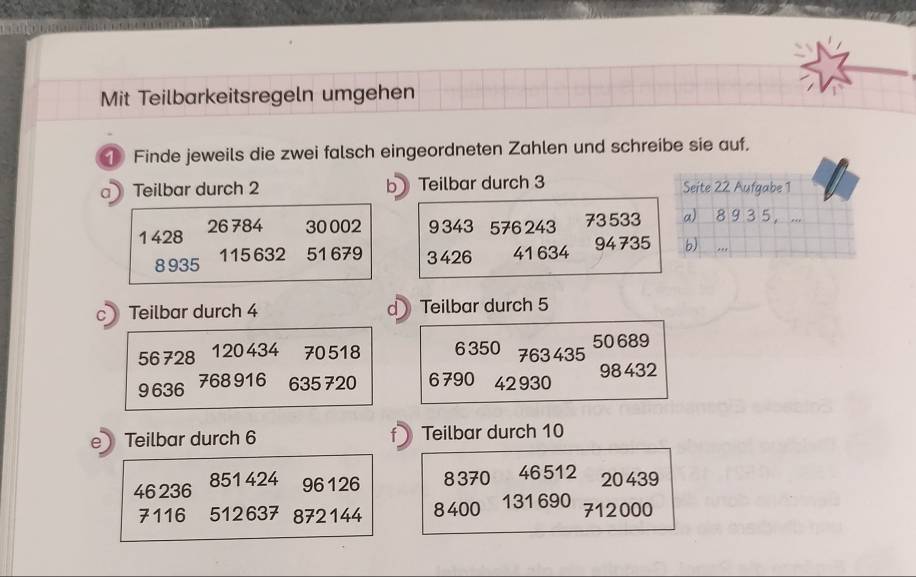 Mit Teilbarkeitsregeln umgehen
1 Finde jeweils die zwei falsch eingeordneten Zahlen und schreibe sie auf.
a) Teilbar durch 2
1 428 26 784 30 002
8 935 115 632 51 679
b) Teilbar durch 3
9 343 576 243 73 533
3 426 41 634 94 735
Seite 22 Aufgabe 1
a) 8 9 3 5, ...
b) ...
c) Teilbar durch 4
56 728 120 434 70 518
9 636 768 916 635 720
d) Teilbar durch 5
6 350 763 435 50 689
6 790 42 930 98 432
e) Teilbar durch 6
46 236 851 424 96 126
7 116 512 637 872 144
f) Teilbar durch 10
8 370 46 512 20 439
8 400 131 690 712 000